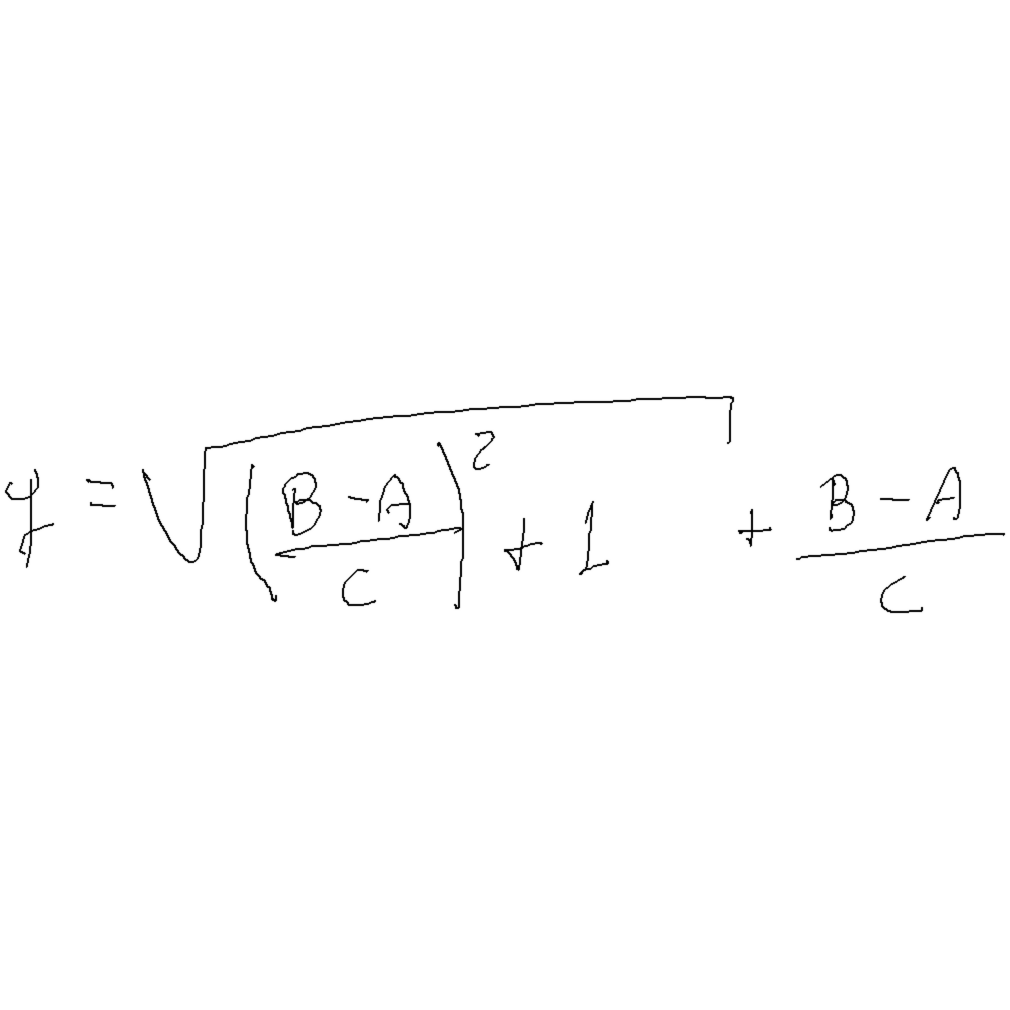 y = √((B-A)/C)² + 1 + (B-A)/C